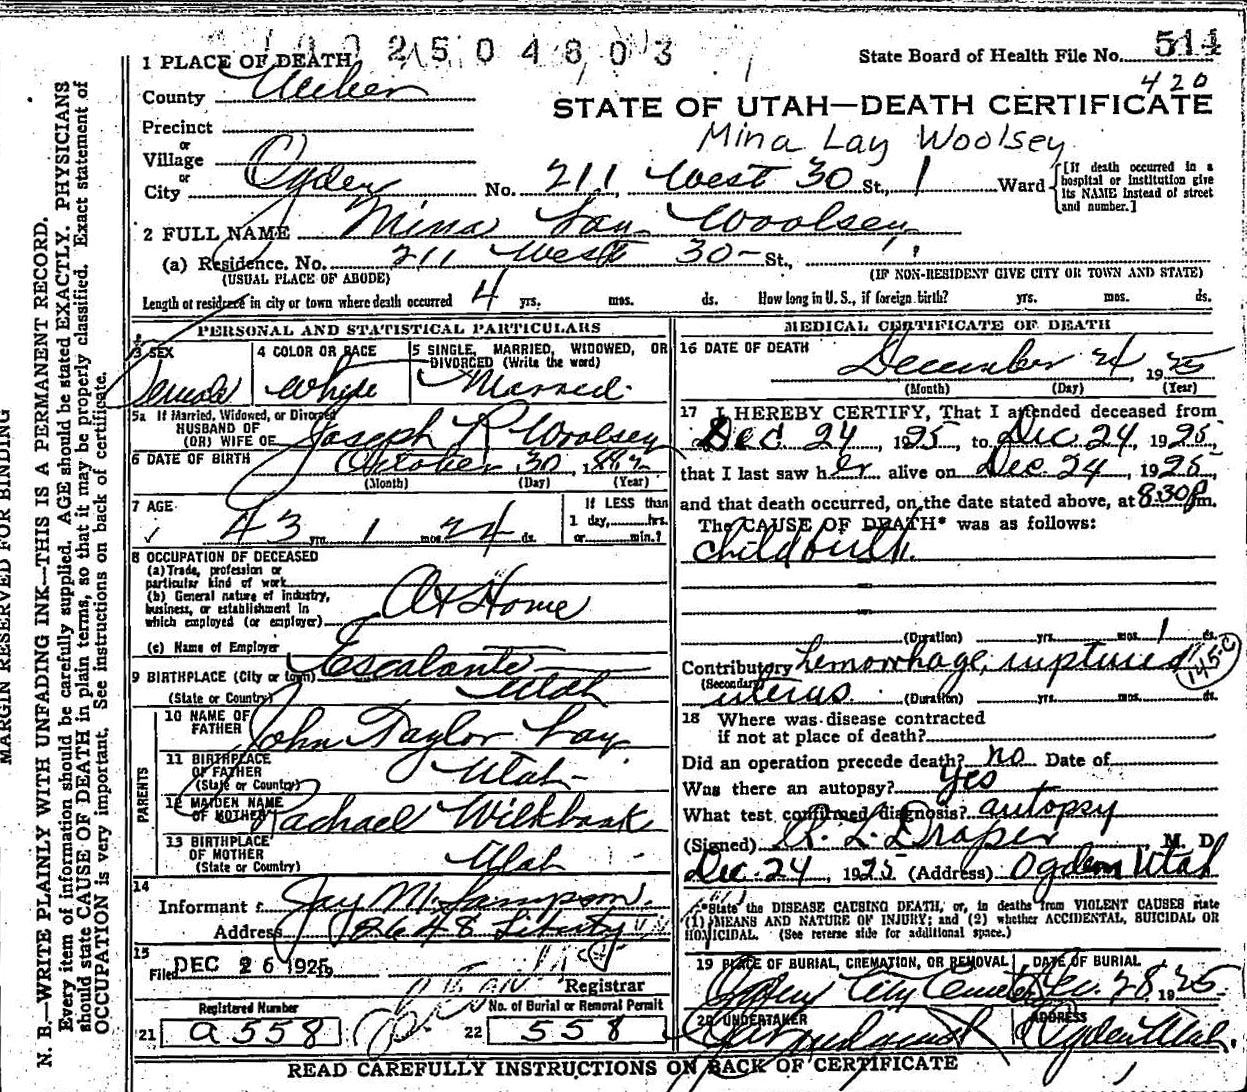 2504803
State Board of Health File No. 511
420
1 PLACE OF DEATH
County Weber
STATE OF UTAH—DEATH CERTIFICATE
Precinct
or
Village
or
City Ogden No. 211 West 30 St., 1 Ward
Mina Lay Woolsey
[If death occurred in a hospital or institution give its NAME instead of street and number.]
2 FULL NAME Mina Lay Woolsey
(a) Residence. No. 211 West 30- St.,
(USUAL PLACE OF ABODE) (IF NON-RESIDENT GIVE CITY OR TOWN AND STATE)
Length of residence in city or town where death occurred 4 yrs. mos. ds. How long in U. S., if foreign birth? yrs. mos. ds.
PERSONAL AND STATISTICAL PARTICULARS
3 SEX 4 COLOR OR RACE 5 SINGLE, MARRIED, WIDOWED, OR DIVORCED (Write the word)
Female White Married
5a If Married, Widowed, or Divorced
HUSBAND OF
(OR) WIFE OF Joseph R Woolsey
6 DATE OF BIRTH October 30, 1882
(Month) (Day) (Year)
7 AGE
43 yrs. 1 mos. 24 ds.
If LESS than
1 day, hrs.
or min.?
8 OCCUPATION OF DECEASED
(a) Trade, profession or
particular kind of work
(b) General nature of industry,
business, or establishment in
which employed (or employer) At Home
(c) Name of Employer
9 BIRTHPLACE (City or town) Escalante
(State or Country) Utah
PARENTS
10 NAME OF
FATHER John Taylor Lay
11 BIRTHPLACE
OF FATHER
(State or Country) Utah
12 MAIDEN NAME
OF MOTHER Rachael Wilkbank
13 BIRTHPLACE
OF MOTHER
(State or Country) Utah
14
Informant Jay M. Sampson
Address 2648 Liberty
15
Filed DEC 26 1925
Registrar
Registered Number No. of Burial or Removal Permit
21 a558 22 558
MEDICAL CERTIFICATE OF DEATH
16 DATE OF DEATH
December 24, 1925
(Month) (Day) (Year)
17 I HEREBY CERTIFY, That I attended deceased from
Dec. 24, 1925, to Dec. 24, 1925,
that I last saw her alive on Dec 24, 1925
and that death occurred, on the date stated above, at 8:30 p m.
The CAUSE OF DEATH* was as follows:
childbirth.
(Duration) yrs. mos. 1 ds.
Contributory hemorrhage, ruptured
145-C
(Secondary) uterus. (Duration) yrs. mos. ds.
18 Where was disease contracted
if not at place of death?
Did an operation precede death? no Date of
Was there an autopsy? yes
What test confirmed diagnosis? autopsy
(Signed) R. L. Draper, M. D
Dec. 24, 1925 (Address) Ogden Utah
*State the DISEASE CAUSING DEATH, or, in deaths from VIOLENT CAUSES state
(1) MEANS AND NATURE OF INJURY; and (2) whether ACCIDENTAL, SUICIDAL OR
HOMICIDAL. (See reverse side for additional space.)
19 PLACE OF BURIAL, CREMATION, OR REMOVAL DATE OF BURIAL
Ogden City Cemetery Dec. 28, 1925
20 UNDERTAKER ADDRESS
Ogden Utah.
READ CAREFULLY INSTRUCTIONS ON BACK OF CERTIFICATE
MARGIN RESERVED FOR BINDING
N. B.—WRITE PLAINLY WITH UNFADING INK—THIS IS A PERMANENT RECORD.
Every item of information should be carefully supplied. AGE should be stated EXACTLY. PHYSICIANS
should state CAUSE OF DEATH in plain terms, so that it may be properly classified. Exact statement of
OCCUPATION is very important. See instructions on back of certificate.